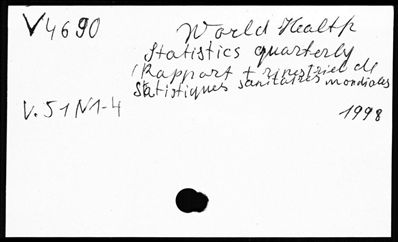 V4690
World Health
Statistics quarterly
(Rapport trimestriel de
Statistiques sanitaires mondiales
V.51 N1-4
1998